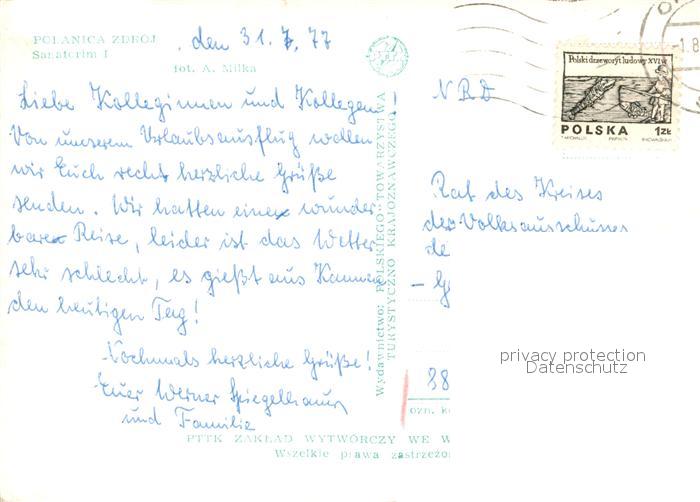 POLANICA ZDRÓJ
Sanatorium I
fot. A. Milka
den 31.7.77
Liebe Kolleginnen und Kollegen!
Von unserem Urlaubsausflug wollen
wir Euch recht herzliche Grüße
senden. Wir hatten eine wunder-
bare Reise, leider ist das Wetter
sehr schlecht, es gießt aus Kannen
den heutigen Tag!
Nochmals herzliche Grüße!
Euer Werner Spiegelhauer
und Familie
PTTK ZAKŁAD WYTWÓRCZY WE W
Wszelkie prawa zastrzeżo
Wydawnictwo: POLSKIEGO TOWARZYSTWA
TURYSTYCZNO KRAJOZNAWCZEGO
Polski drzeworyt ludowy XVI w.
POLSKA 1 ZŁ
-1.8
NRD
Rat des Kreises
der Volksausschusses
de
- G
88
ozn. k
privacy protection
Datenschutz